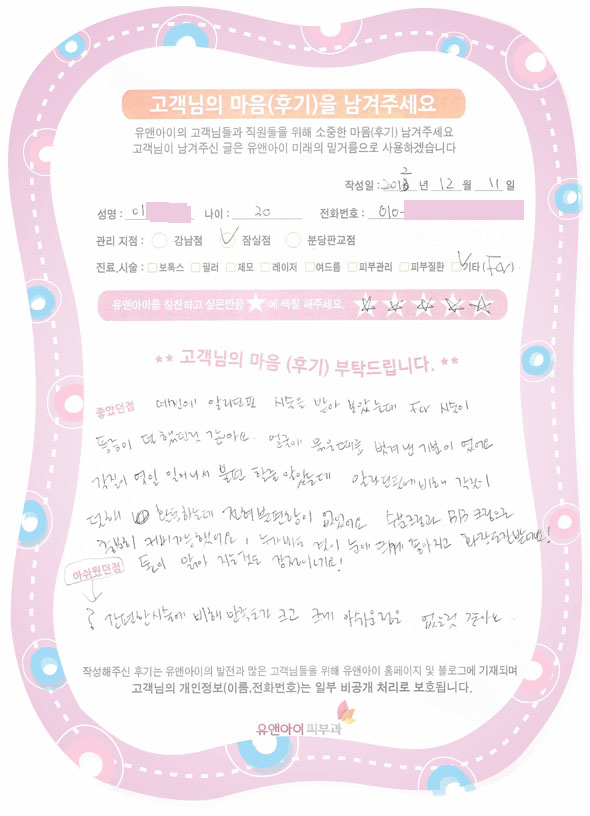 고객님의 마음(후기)을 남겨주세요
유앤아이의 고객님들과 직원들을 위해 소중한 마음(후기) 남겨주세요
고객님이 남겨주신 글은 유앤아이 미래의 밑거름으로 사용하겠습니다
작성일 : 2012 년 12 월 11 일
성명 : 이 나이 : 20 전화번호 : 010-
관리 지점 : 강남점 잠실점 분당판교점
진료,시술 : 보톡스 필러 제모 레이저 여드름 피부관리 피부질환 기타 (Fcr)
유앤아이를 칭찬하고 싶은만큼 ★에 색칠 해주세요.
** 고객님의 마음 (후기) 부탁드립니다. **
좋았던점 예전에 알라딘필 시술을 받아 보았는데 Fcr 시술이
통증이 덜 했던것 같아요. 얼굴에 묵은때를 벗겨낸 기분이 었어요
각질이 몇일 일어나서 불편 할줄 알았는데 알라딘필에 비해 각질이
덜해 만족하는데 전혀 불편함이 없었어요 수분크림과 BB 크림으로
충분히 커버가능했어요, 누가봐도 결이 눈에 띄게 좋아지고 화장도 잘받네요!
톤이 맑아 지는것도 장점이네요!
아쉬웠던점
간편한시술에 비해 만족도가 크고 크게 아쉬운점은 없는것 같아요.
작성해주신 후기는 유앤아이의 발전과 많은 고객님들을 위해 유앤아이 홈페이지 및 블로그에 기재되며
고객님의 개인정보(이름,전화번호)는 일부 비공개 처리로 보호됩니다.
유앤아이피부과